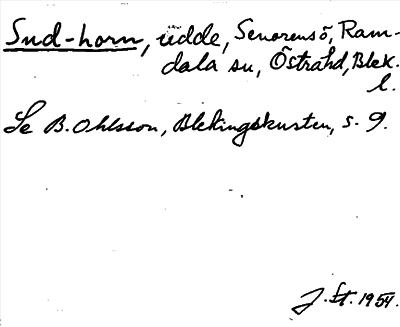 Sud-horn, udde, Senorensö, Ram-
dala sn, Östra hd, Blek.
l.
Se B. Ohlsson, Blekingskusten, s. 9.
J. St. 1954.